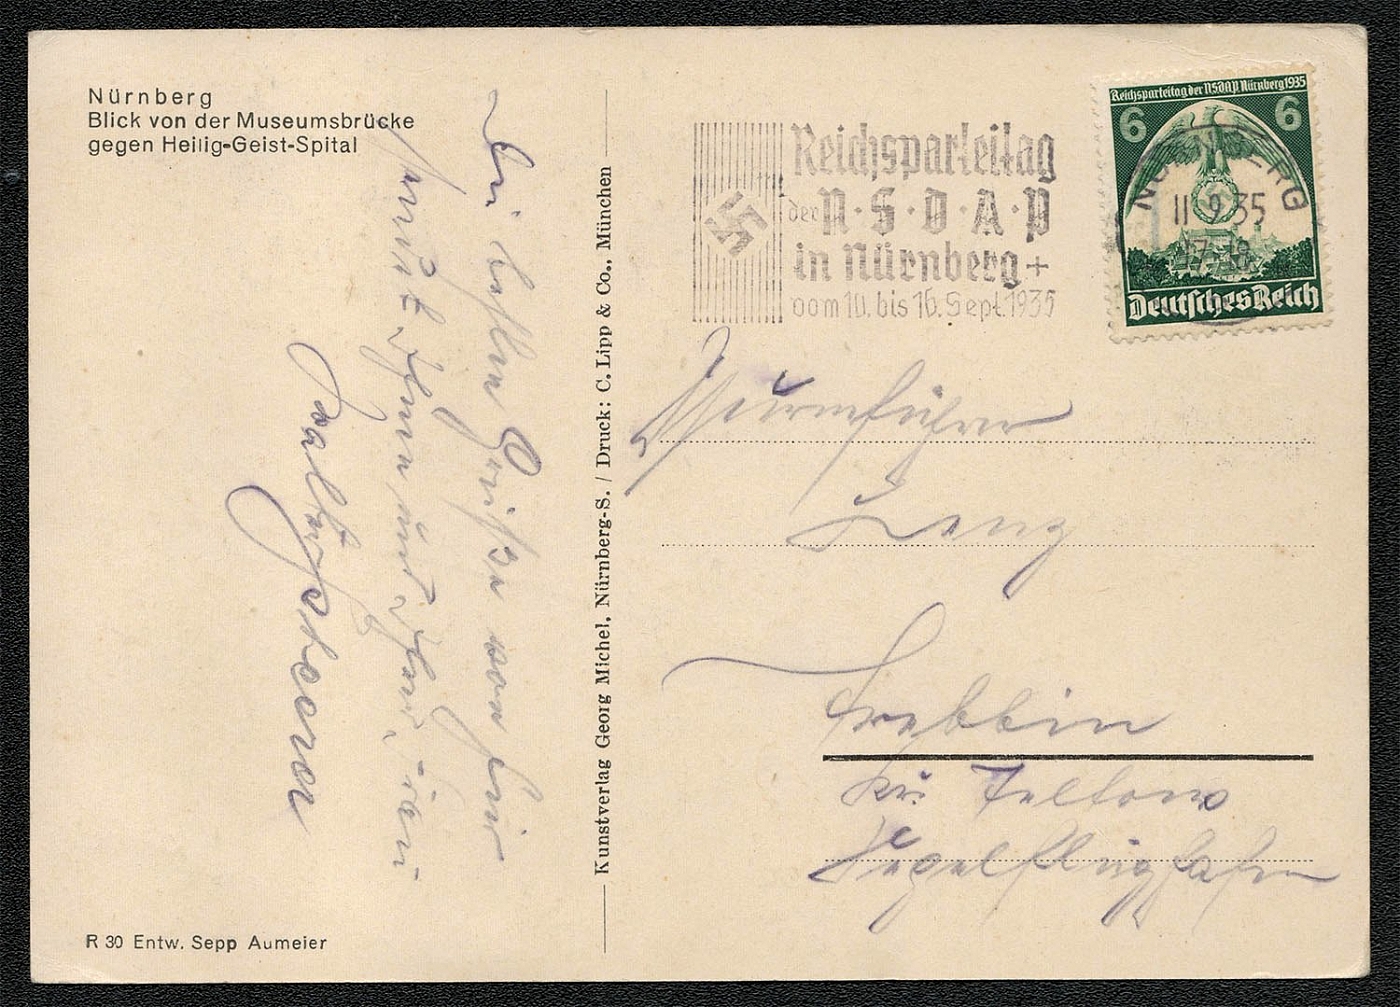 Nürnberg
Blick von der Museumsbrücke
gegen Heilig-Geist-Spital
Die besten Grüße von hier
sendet Ihnen und
R 30 Entw. Sepp Aumeier
Kunstverlag Georg Michel, Nürnberg-S. / Druck: C. Lipp & Co., München
Reichsparteitag
der N·S·D·A·P
in Nürnberg +
vom 10. bis 16. Sept. 1935
Reichsparteitag der NSDAP Nürnberg 1935
6 6
NÜRNBERG
11 9 35
17-18
Deutsches Reich
Sturmführer
Lenz
Trebbin
Kr. Teltow
Segelflughafen